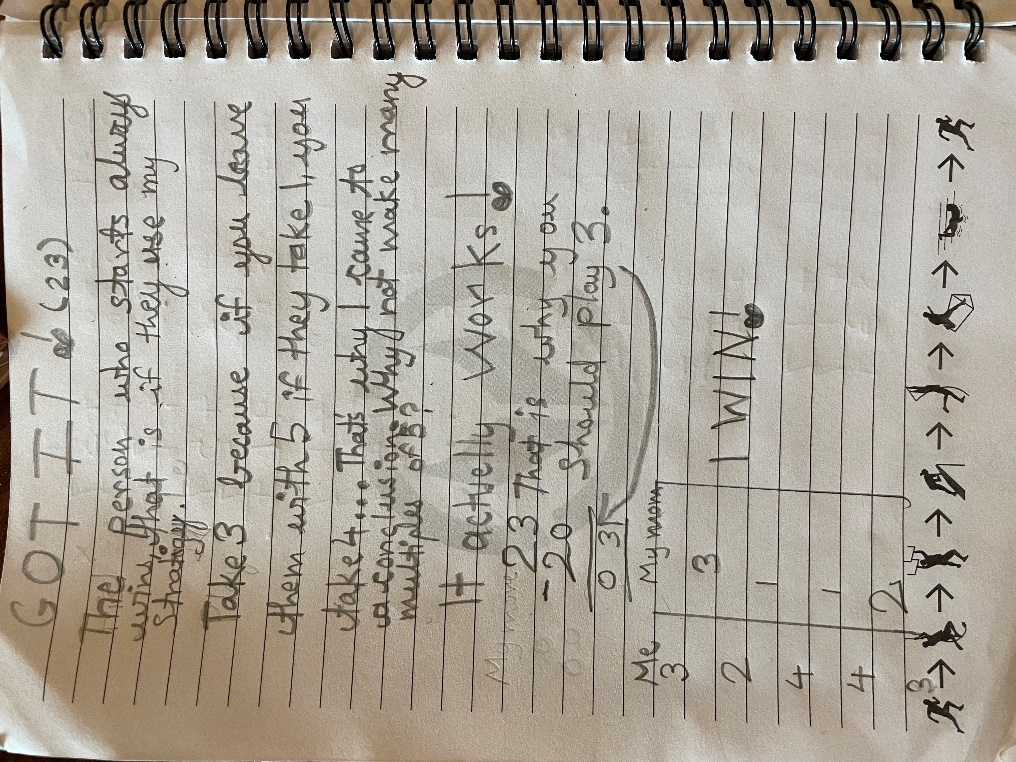 GOT IIT! (23)
The person who starts always
wins, that is if they use my
Stratigey.
Take 3 because if you leave
them with 5 if they take 1, you
take 4... That's why I came to
a conclusion. Why not make many
multiples of 5?
It actuelly works!
My move
23 That is why you
- 20 should play 3.
03
Me My mom
3 3
2 1
4 1
4 2
3
I WIN!